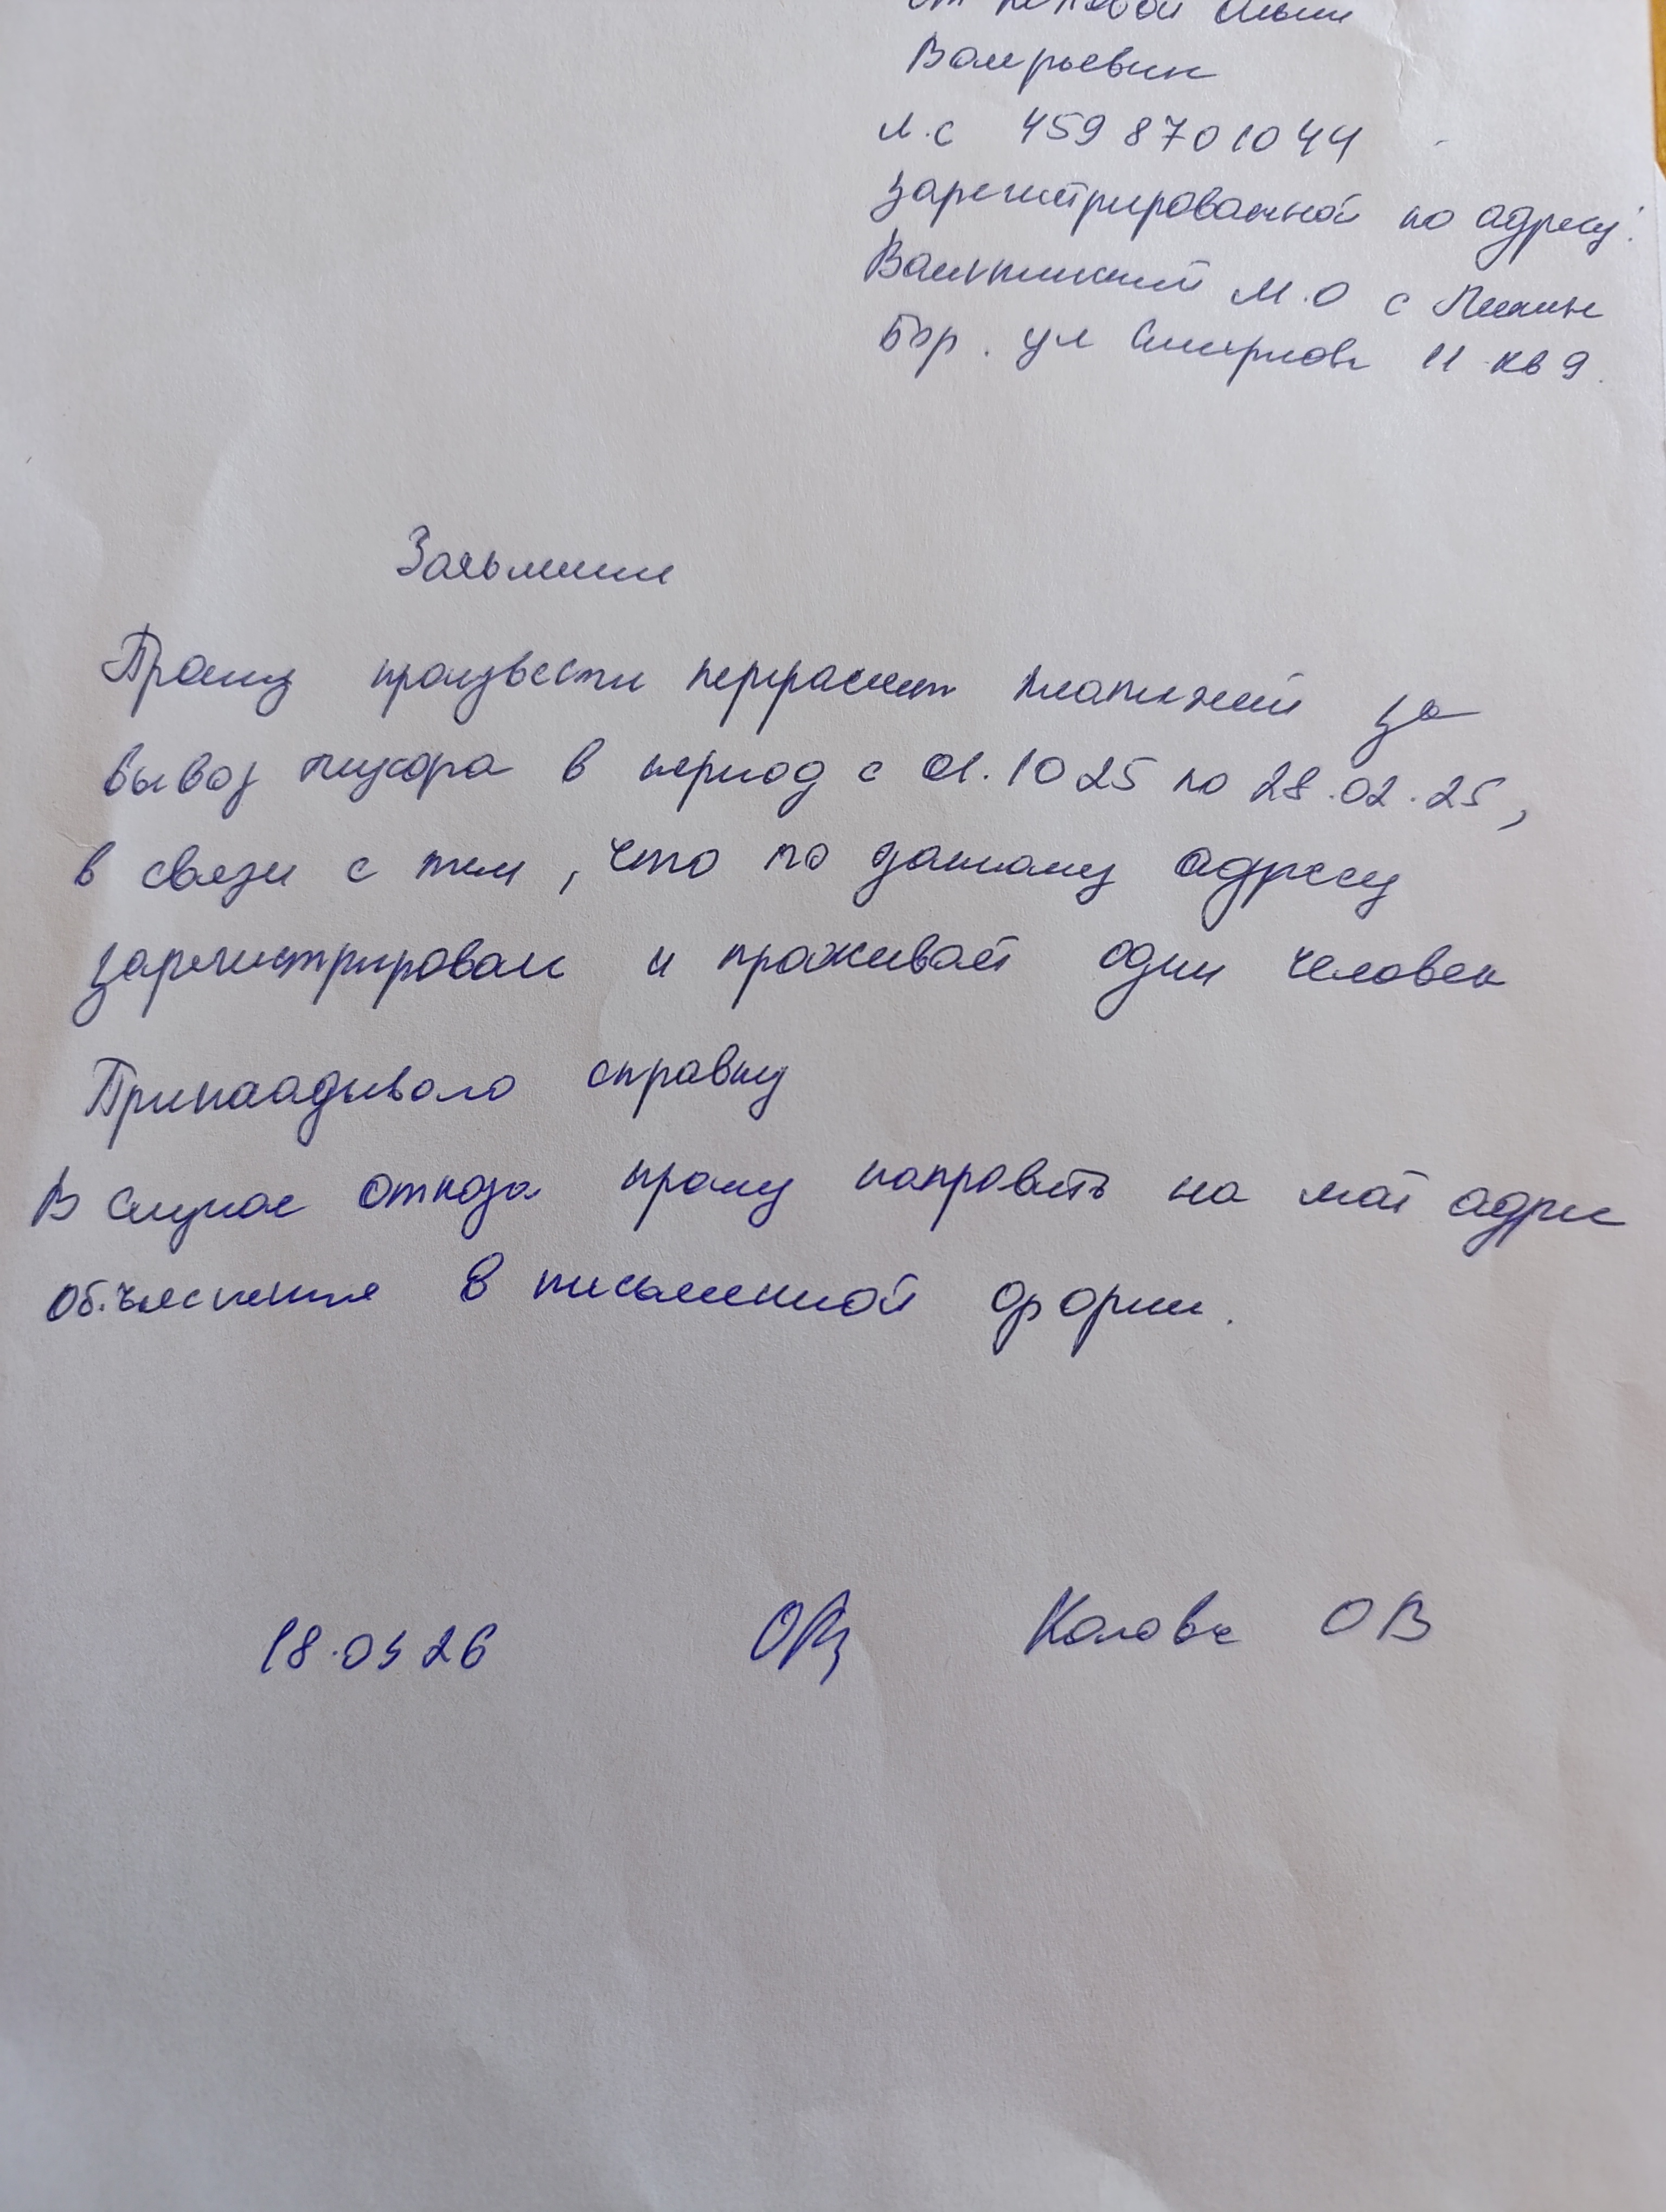 Валерьевны
л.с 4598701044
зарегистрированной по адресу:
М.О с
Бор. ул Смирнова 11 кв 9.
Заявление
Прошу произвести перерасчет платежей за
вывоз мусора в период с 01.10 25 по 28.02.25,
в связи с тем, что по данному адресу
зарегистрирован и проживает один человек
Прикладываю справку
В случае отказа прошу направить на мой адрес
объяснения в письменной форме.
18.03 26
О В